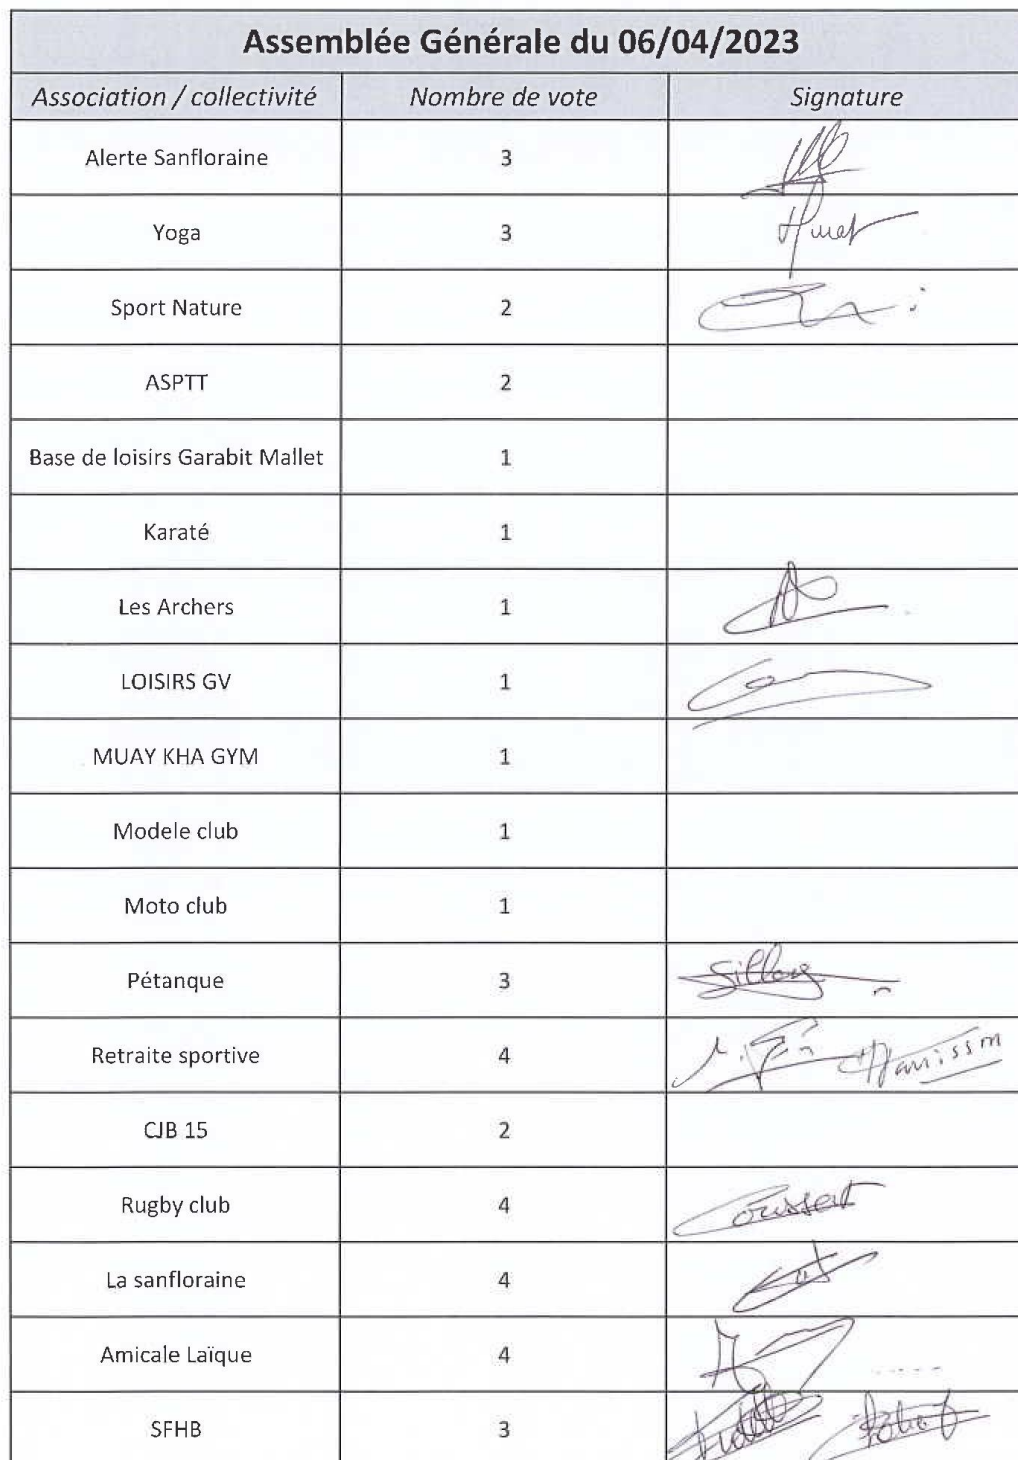 Assemblée Générale du 06/04/2023
Association / collectivité Nombre de vote Signature
Alerte Sanfloraine 3
Yoga 3
Sport Nature 2
ASPTT 2
Base de loisirs Garabit Mallet 1
Karaté 1
Les Archers 1
LOISIRS GV 1
MUAY KHA GYM 1
Modele club 1
Moto club 1
Pétanque 3
Retraite sportive 4
CJB 15 2
Rugby club 4
La sanfloraine 4
Amicale Laïque 4
SFHB 3